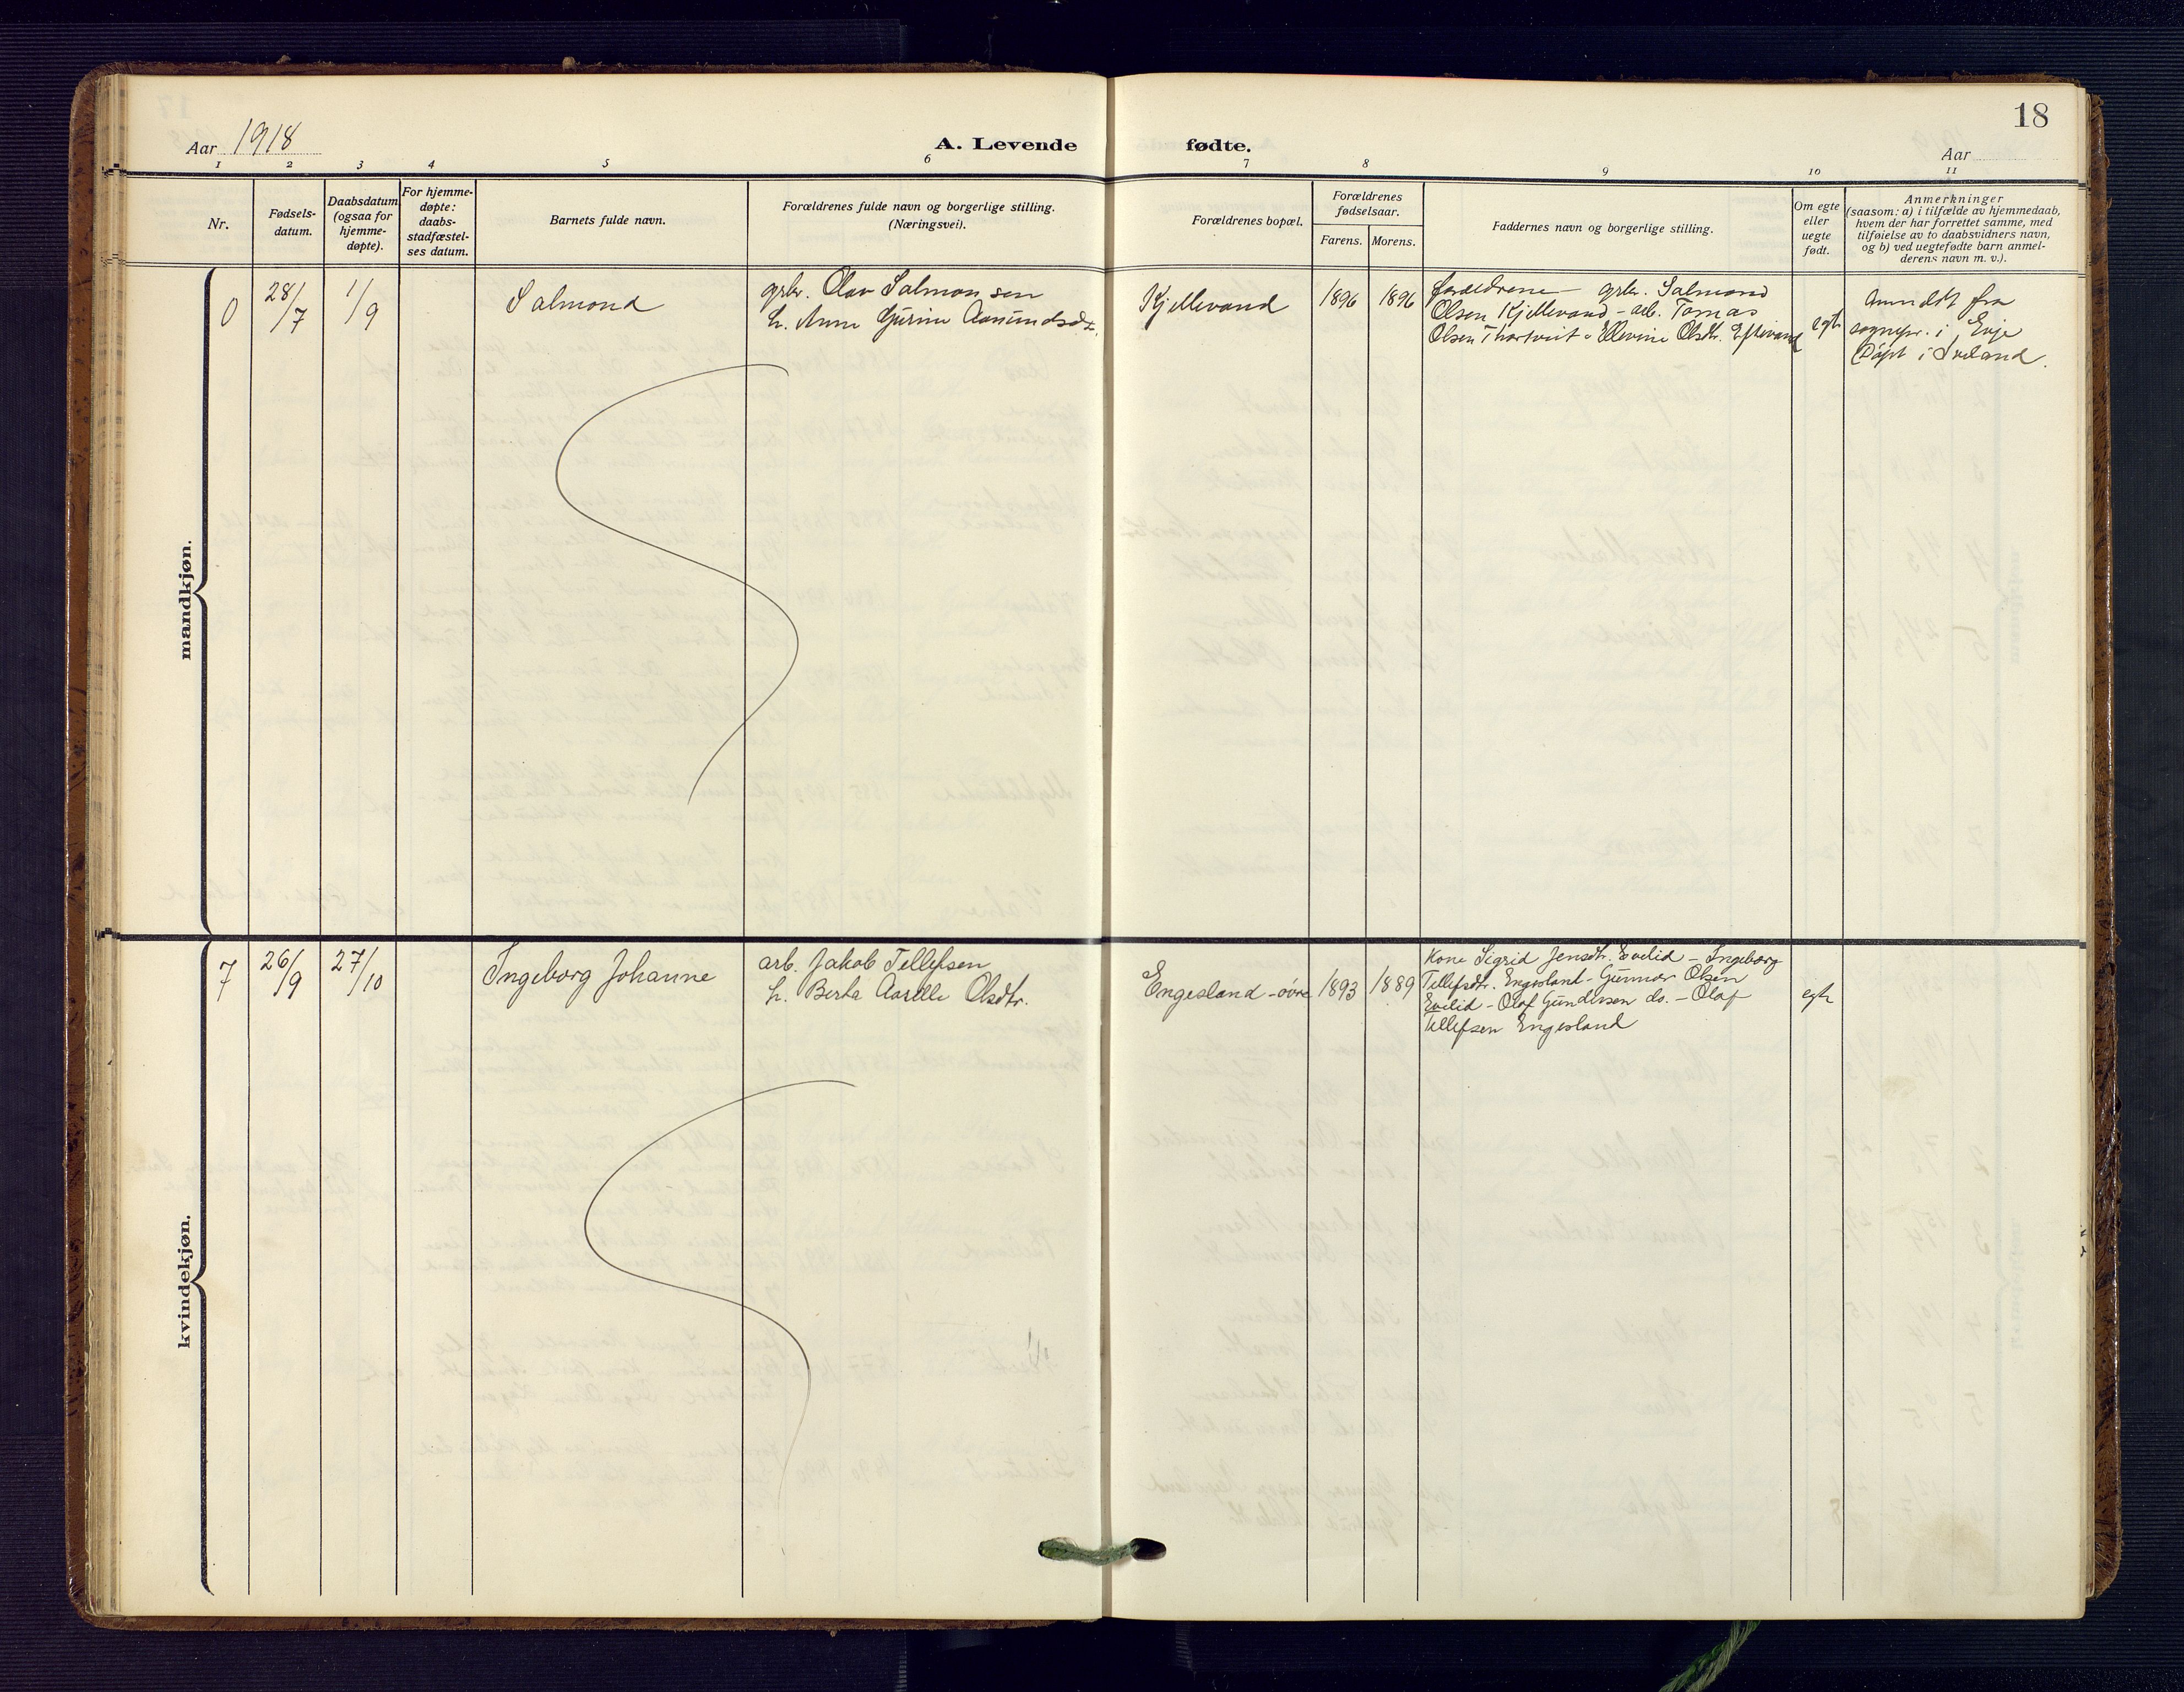 18
Aar 1918
A. Levende fødte.
Aar
1 2 3 4 5 6 7 8 9 10 11
Nr.
Fødsels-
datum.
Daabsdatum
(ogsaa for
hjemme-
døpte).
For hjemme-
døpte:
daabs-
stadfæstel-
ses datum.
Barnets fulde navn.
Forældrenes fulde navn og borgerlige stilling.
(Næringsvei).
Forældrenes bopæl.
Forældrenes
fødselsaar.
Farens. Morens.
Faddernes navn og borgerlige stilling.
Om egte
eller
uegte
født.
Anmerkninger
(saasom: a) i tilfælde av hjemmedaab,
hvem der har forrettet samme, med
tilføielse av to daabsvidners navn,
og b) ved uegtefødte barn anmel-
derens navn m. v.).
mandkjøn.
0
28/7
1/9
Salmond
grbr. Olav Salmonsen
h. Anne Gurine Aanundsdtr.
Kjellevand
1896
1896
forældrene - grbr. Salmond
Olsen Kjellevand - arb. Tomas
Olsen Thortveit - Ellevine Olsdtr. Eftevand
egte
Anmeldt fra
sognepr. i Evje
Døpt i Iveland.
kvindekjøn.
7
26/9
27/10
Ingeborg Johanne
arb. Jakob Tellefsen
h. Berta Aasille Olsdtr.
Engesland - øvre
1893
1889
Kone Sigrid Jensdtr. Evelid - Ingeborg
Tellefsdtr. Engesland - Gunnar Olsen
Evelid - Olaf Gundersen do. - Olaf
Tellefsen Engesland
egte